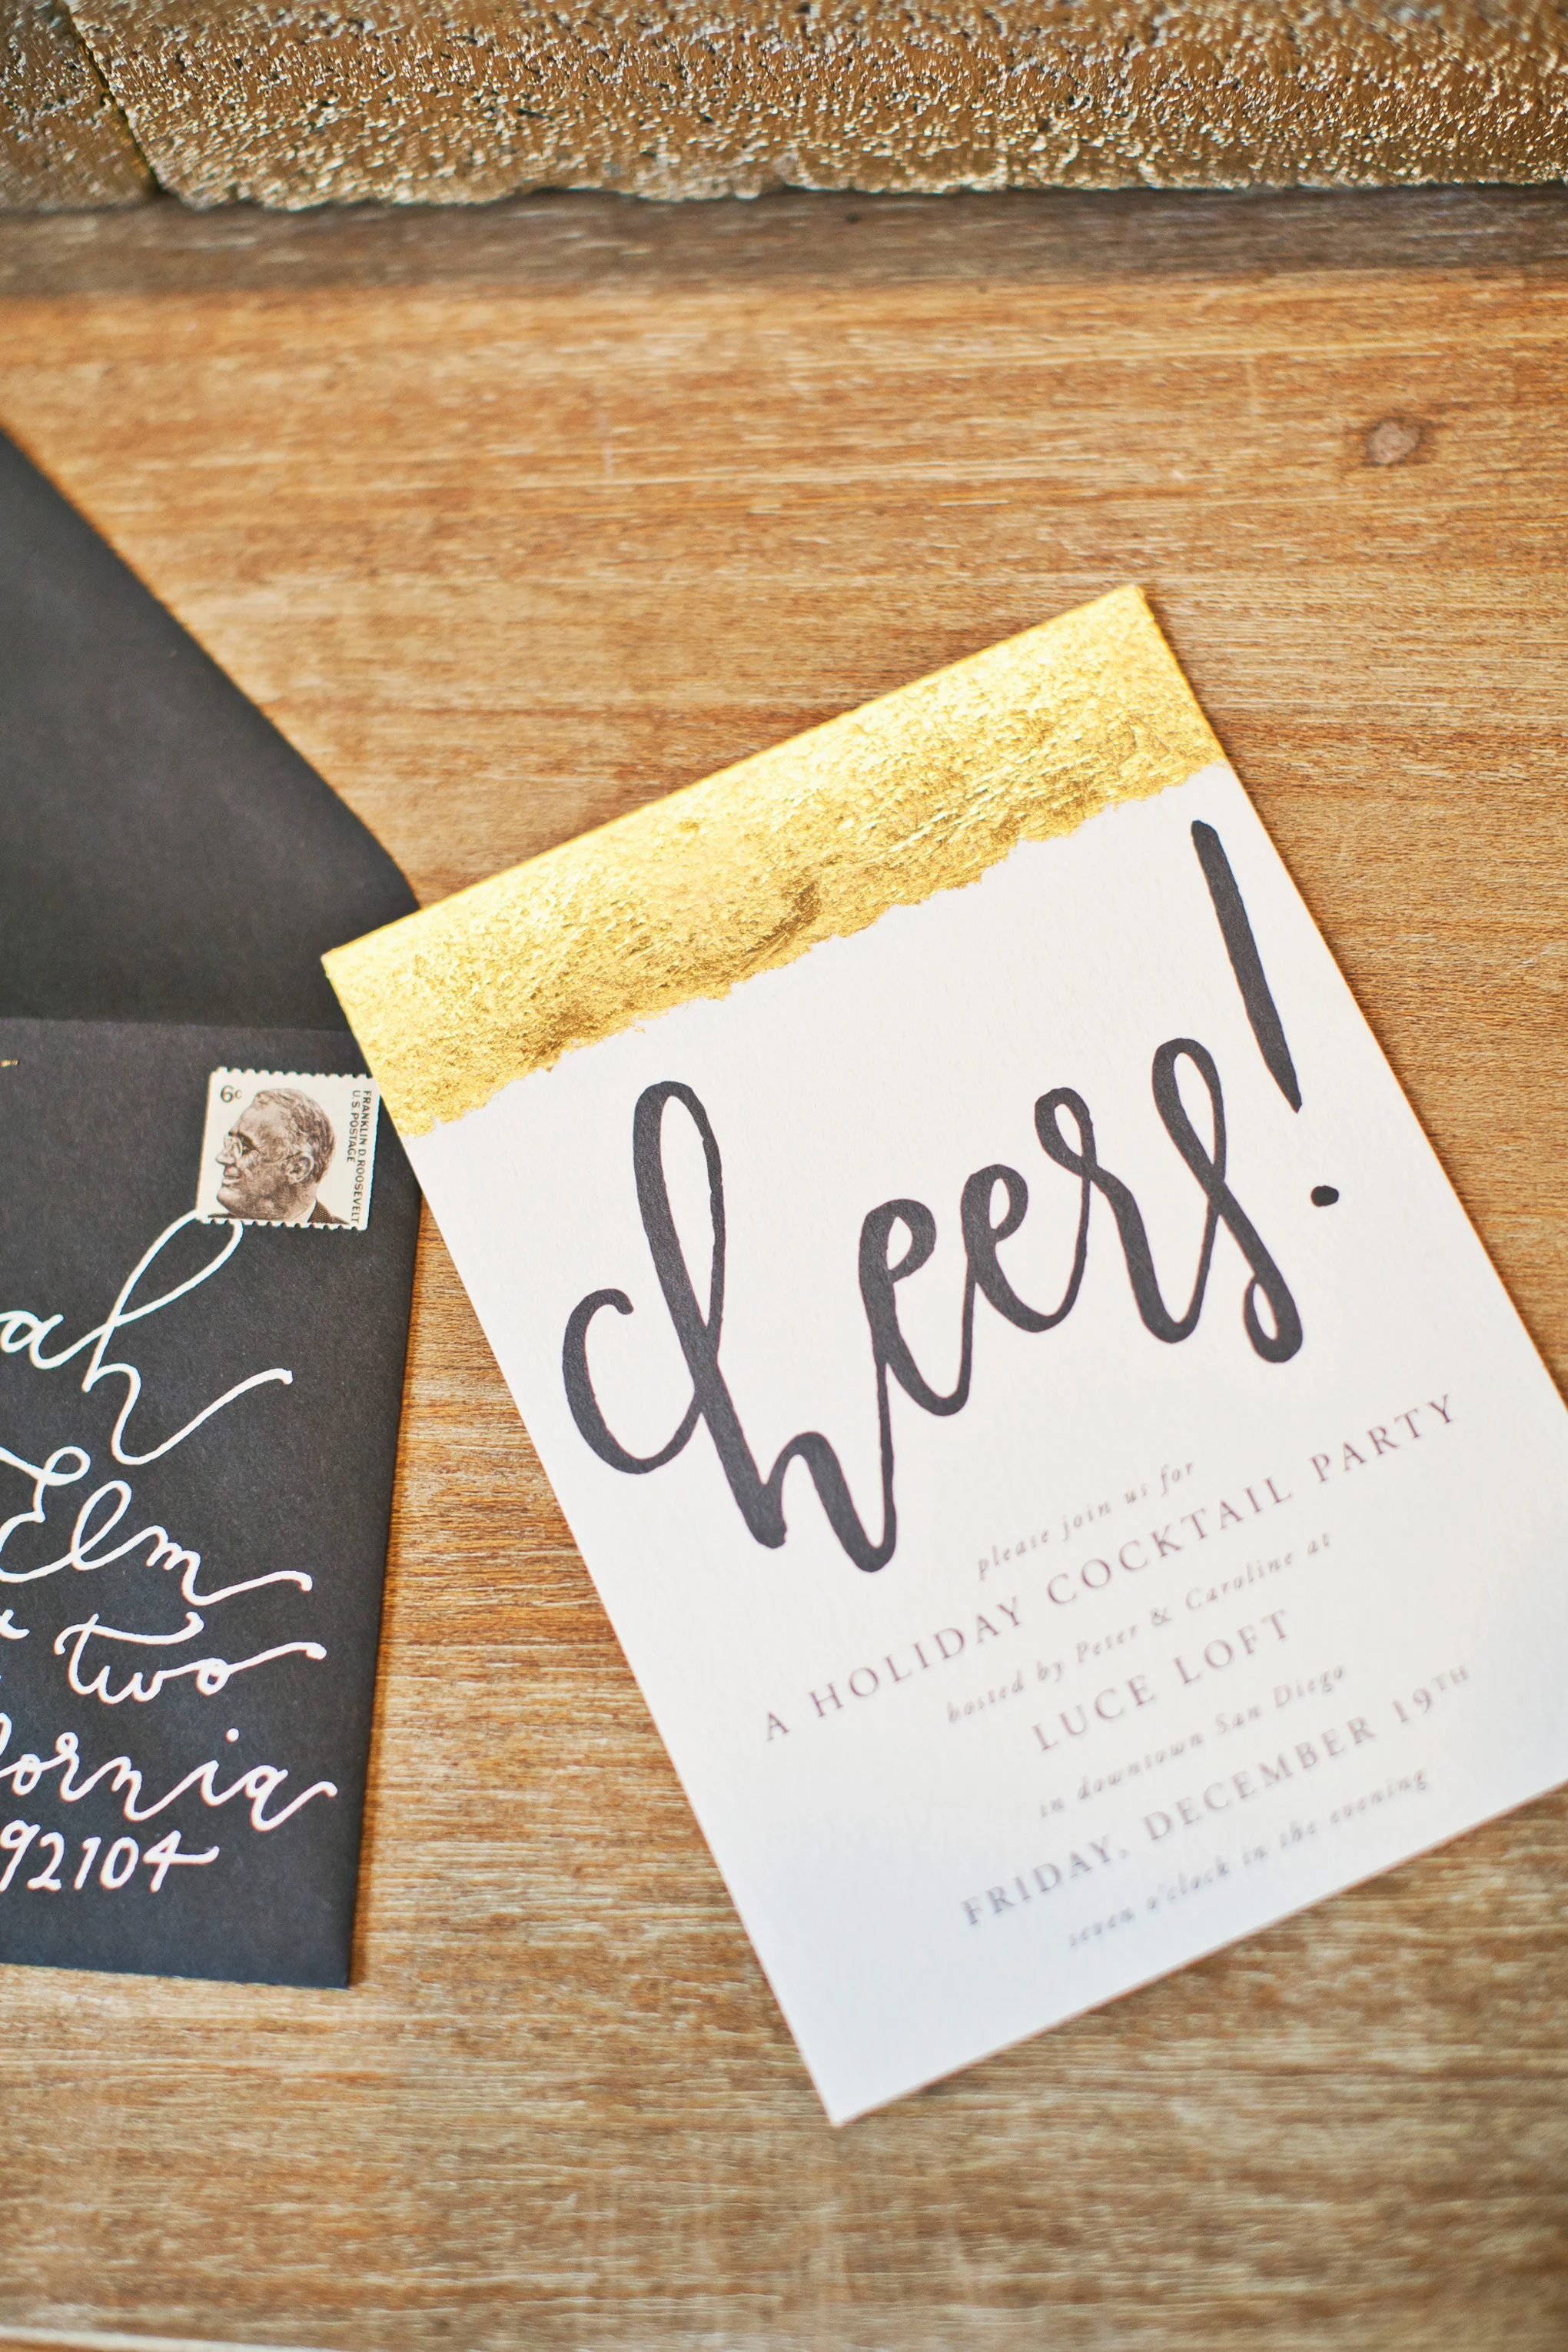 6¢
FRANKLIN D. ROOSEVELT
U.S. POSTAGE
ah
Elm
two
ornia
92104
cheers!
please join us for
A HOLIDAY COCKTAIL PARTY
hosted by Peter & Caroline at
LUCE LOFT
in downtown San Diego
FRIDAY, DECEMBER 19TH
seven o'clock in the evening